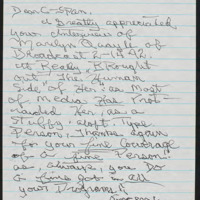 Dear C-Span,
I Greatly appreciated
your Interview of
Marilyn Quayle of
Broadcast 2-19-92.
It Really Brought
out The human
Side of Her; as Most
of Media Has Not
Her as a
Stuffy, aloft Type
Person, Thanks
for your fine Coverage
of a fine Person.
as always, you Do
a fine Job in all
your Programs!